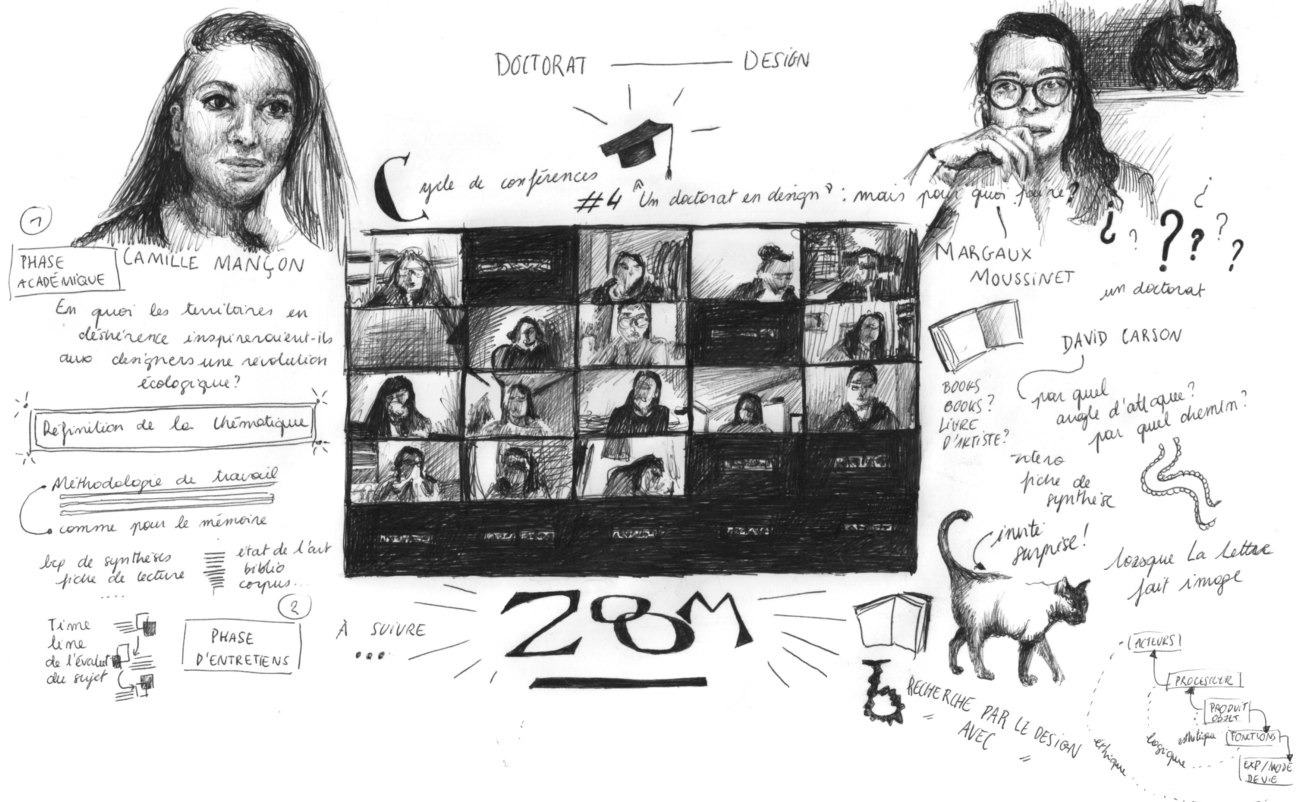 DOCTORAT — DESIGN
Cycle de conférences
#4 "Un doctorat en design" : mais pour quoi faire?
1
PHASE
ACADÉMIQUE
CAMILLE MANÇON
En quoi les territoires en
déshérence inspireraient-ils
aux designers une révolution
écologique?
Définition de la thématique
Méthodologie de travail
comme pour le mémoire
bcp de synthèses
fiche de lecture
....
état de l'art
biblio
corpus...
Time
line
de l'évolution
du sujet
2
PHASE
D'ENTRETIENS
À SUIVRE
...
ZOOM
MARGAUX
MOUSSINET
¿ ? ? ? ? ¿ ?
un doctorat
DAVID CARSON
par quel
angle d'attaque?
par quel chemin?
BOOKS
BOOKS?
LIVRE
D'ARTISTE?
fiche de
synthèse
invité
surprise!
lorsque La lettre
fait image
b
RECHERCHE PAR LE DESIGN
= AVEC =
ACTEURS
PROCESSUR
PRODUIT
OBJET
FONCTIONS
EXP/MODE
DE VIE
éthique
logique
esthétique